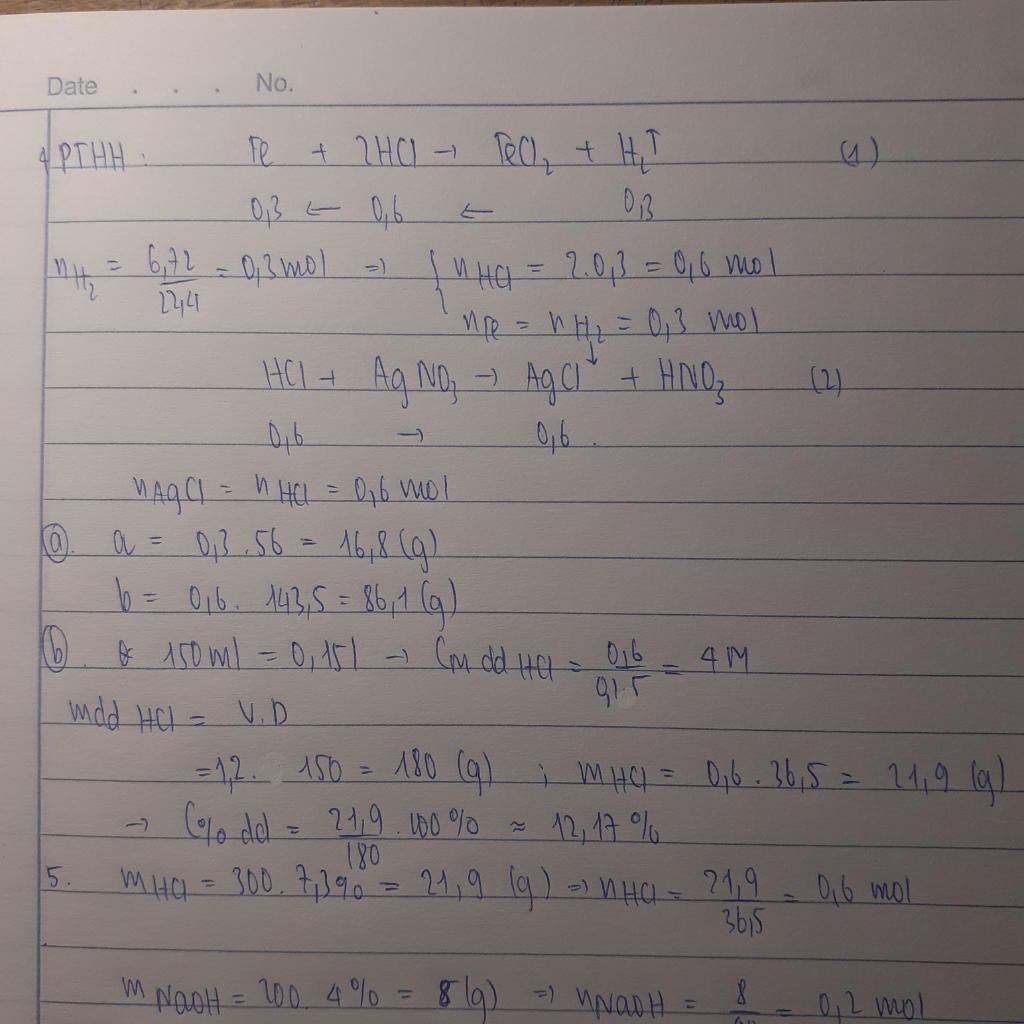 Date . . . No.
4 PTHH: Fe + 2HCl → FeCl₂ + H₂↑ (1)
0,3 ← 0,6 ← 0,3
nH₂ = 6,72/22,4 = 0,3 mol ⇒ { nHCl = 2.0,3 = 0,6 mol
nFe = nH₂ = 0,3 mol
HCl + AgNO₃ → AgCl↓ + HNO₃ (2)
0,6 → 0,6.
nAgCl = nHCl = 0,6 mol
ⓐ. a = 0,3.56 = 16,8 (g)
b = 0,6. 143,5 = 86,1 (g)
ⓑ. 150ml = 0,15l → CM dd HCl = 0,6/0,15 = 4M
mdd HCl = V.D
=1,2. 150 = 180 (g) ; mHCl = 0,6.36,5 = 21,9 (g)
→ C% dd = 21,9/180 .100% ≈ 12,17%
5. mHCl = 300.7,3% = 21,9 (g) ⇒ nHCl = 21,9/36,5 = 0,6 mol
mNaOH = 200. 4% = 8(g) ⇒ nNaOH = 8/ = 0,2 mol